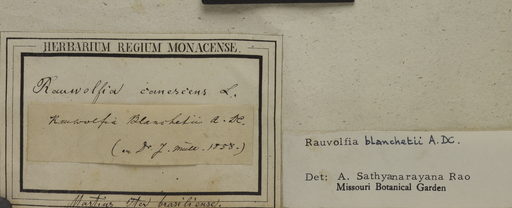 HERBARIUM REGIUM MONACENSE.
Rauwolfia canescens L.
Rauwolfia Blanchetii A. DC.
(ex Dr J. Müll. 1858.)
Martius Iter brasiliense.
Rauvolfia blanchetii A. DC.
Det: A. Sathyanarayana Rao
Missouri Botanical Garden